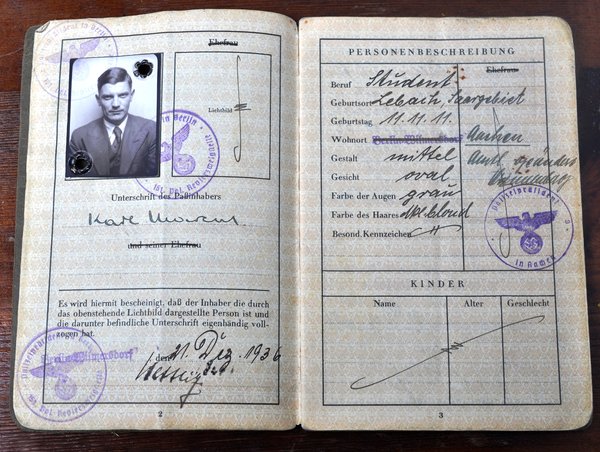 Ehefrau
Lichtbild
Unterschrift des Paßinhabers
Karl
und seiner Ehefrau
Es wird hiermit bescheinigt, daß der Inhaber die durch
das obenstehende Lichtbild dargestellte Person ist und
die darunter befindliche Unterschrift eigenhändig voll-
zogen hat.
Berlin-Wilmersdorf, den 21. Dez. 1936
2
PERSONENBESCHREIBUNG
Ehefrau
Beruf Student
Geburtsort Lebach, Saargebiet
Geburtstag 11.11.11.
Wohnort Berlin-Wilmersdorf Aachen
Gestalt mittel Amtl. geändert
Gesicht oval
Farbe der Augen grau
Farbe des Haares dklblond
Besond. Kennzeichen
Polizeipräsident
in Aachen
KINDER
Name Alter Geschlecht
3